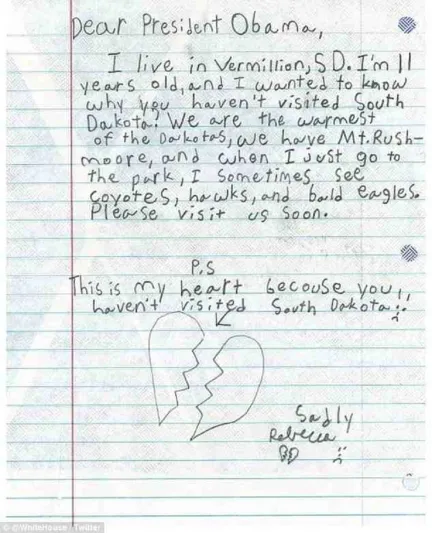 Dear President Obama,
I live in Vermillion, SD. I'm 11
years old, and I wanted to know
why you haven't visited South
Dakota. We are the warmest
of the Dakotas, we have Mt. Rush-
moore, and when I just go to
the park, I sometimes see
coyotes, hawks, and bald eagles.
Please visit us soon.
P.S
This is my heart becouse you
haven't visited South Dakota
Sadly
Rebecca
© @WhiteHouse / Twitter